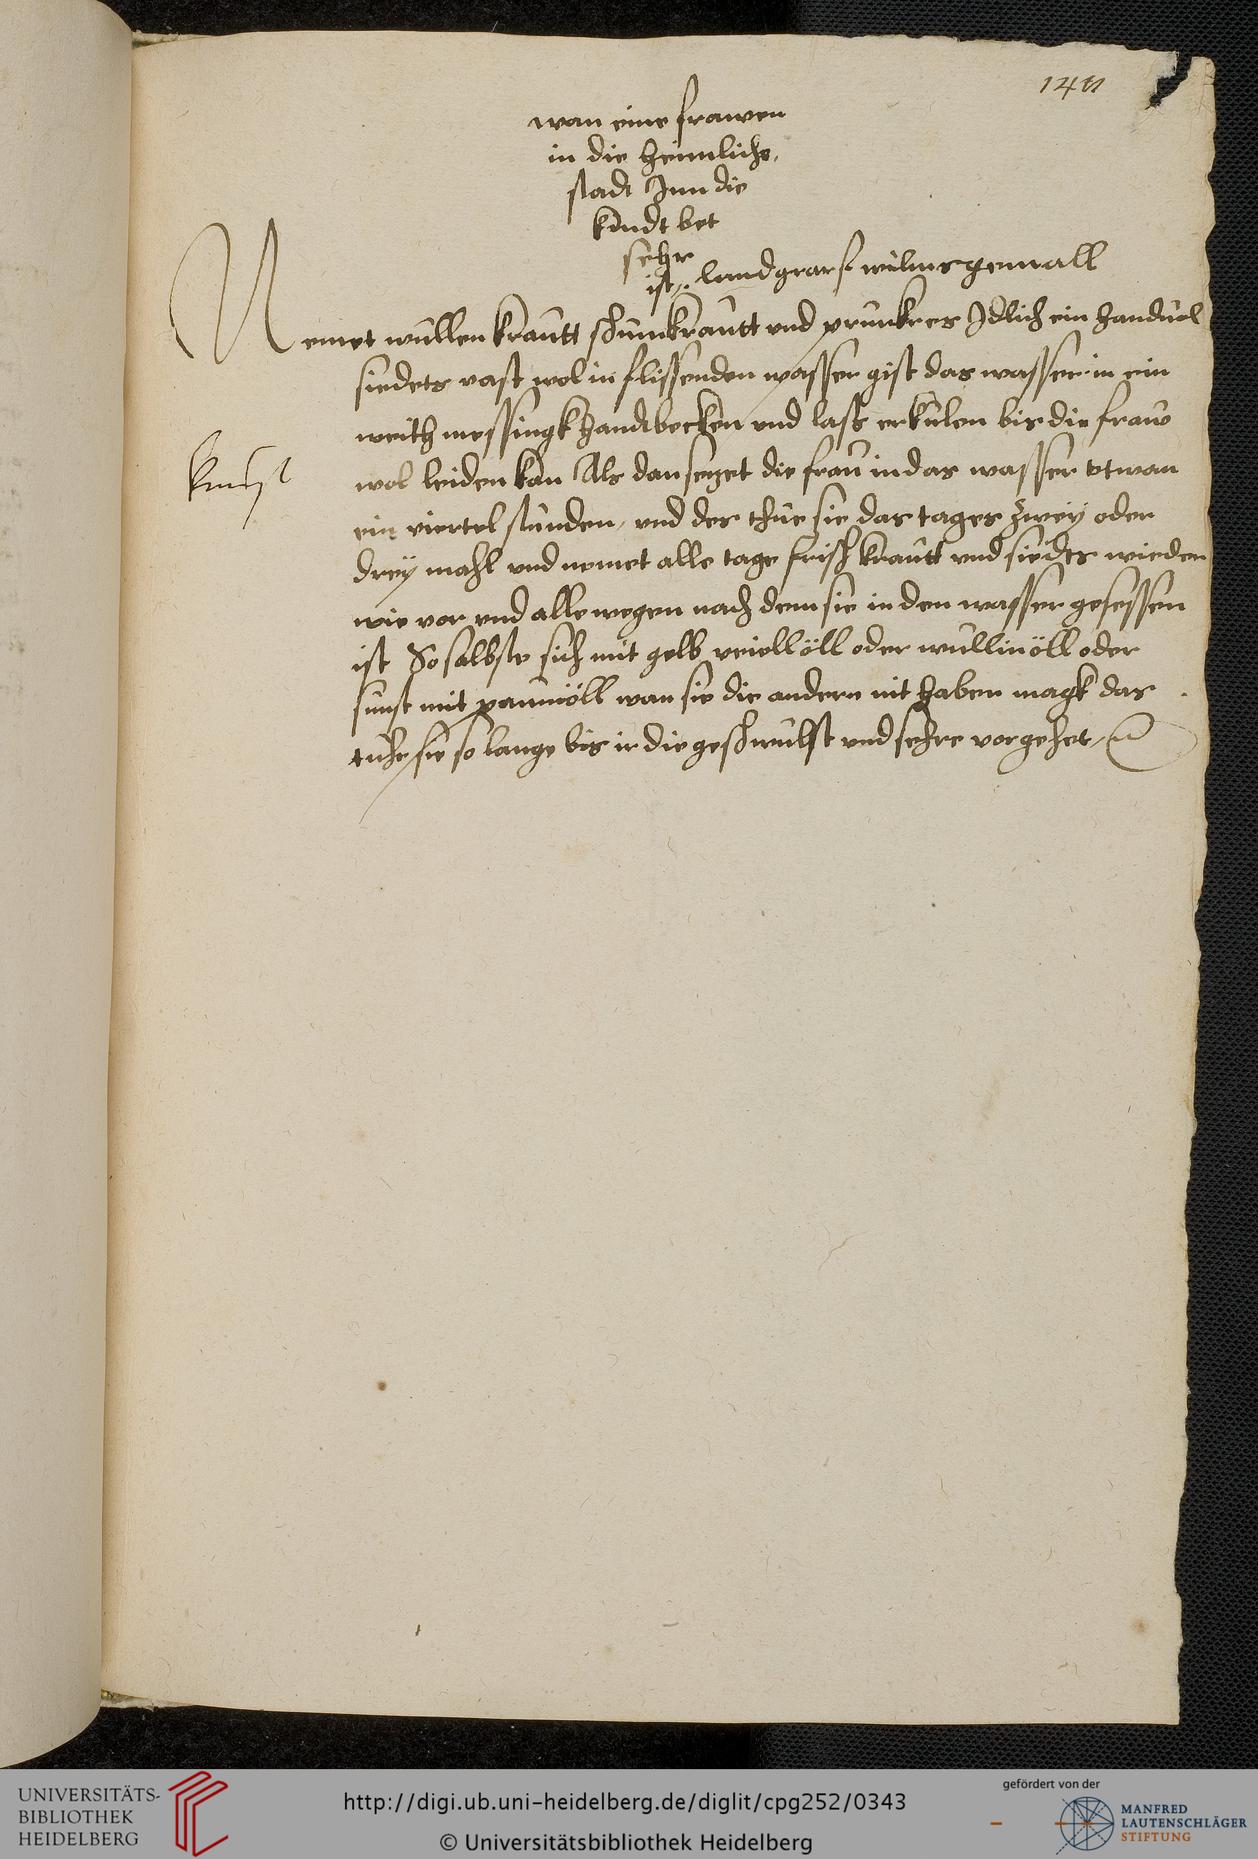 wan eine frawen
in die heimliche,
stadt Inn die
kindt bet
sehr
ist,. landgraf wilms gemall
Nemet wullen krautt schunkrautt vnd prunkres Jdlich ein handuol
siedets vast wol in flissenden wasser gist das wasser in ein
weith messingk handtbecken vnd last erkulen bis die fraw
kunst
wol leiden kan Als dan setzet die frau in das wasser etwan
ein viertel stunden, vnd des thue sie das tages zwey oder
drey mahl vnd nemet alle tage frisch krautt vnd siedts wieder
wie vor vnd alle wegen nach dem sie in den wasser gesessen
ist So salbste sich mit gelb veiell öll oder wullin öll oder
sunst mit paumöll wan sie die andern nit haben magk das
tuhe sie so lange bis ir die geschwulst vnd sehre vorgehet,
UNIVERSITÄTS-
BIBLIOTHEK
HEIDELBERG
http://digi.ub.uni-heidelberg.de/diglit/cpg252/0343
© Universitätsbibliothek Heidelberg
gefördert von der
MANFRED
LAUTENSCHLÄGER
STIFTUNG